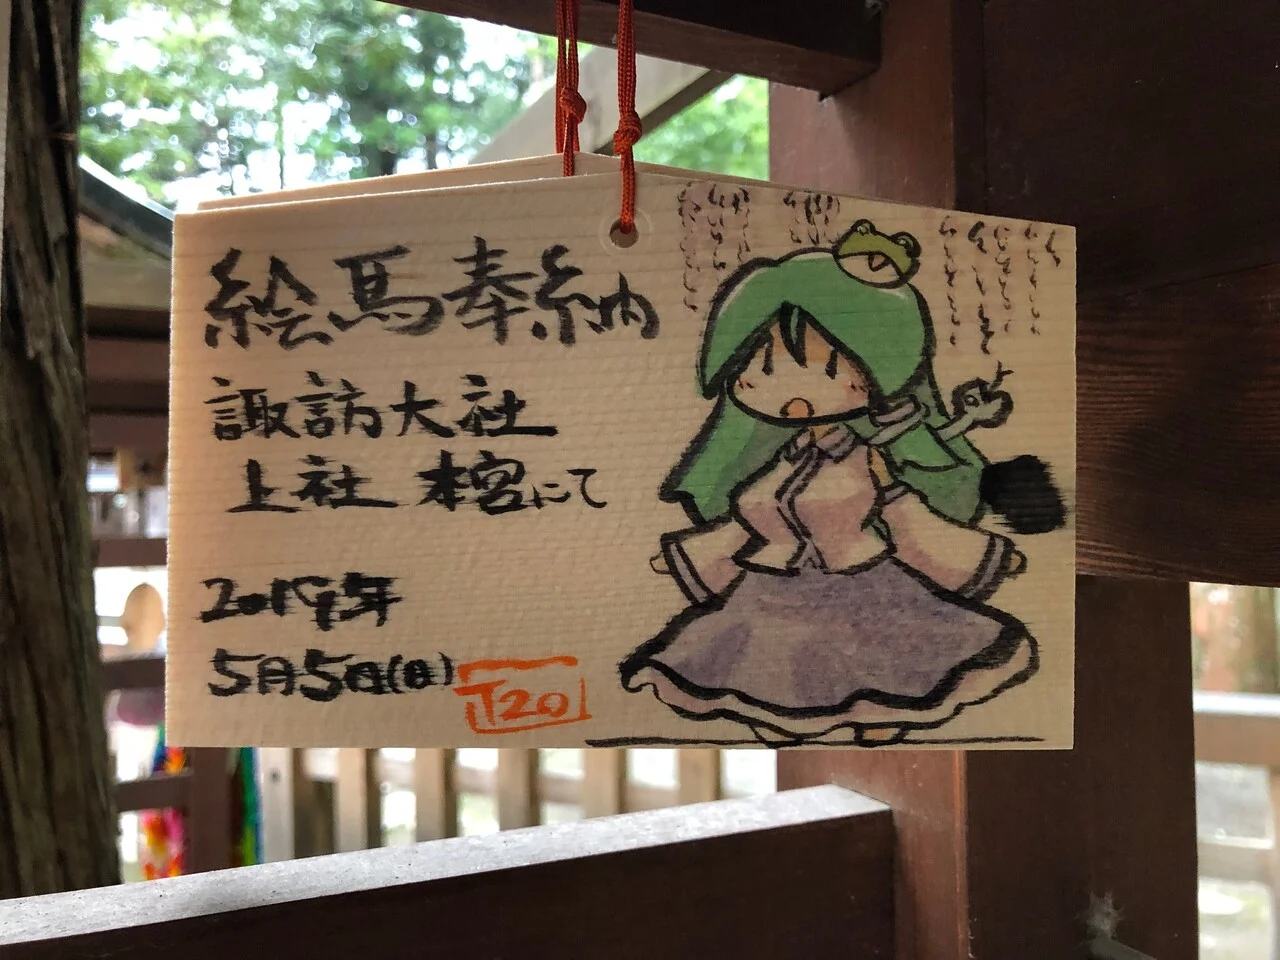 絵馬奉納
諏訪大社
上社 本宮にて
2019年
5月5日(日)
T20